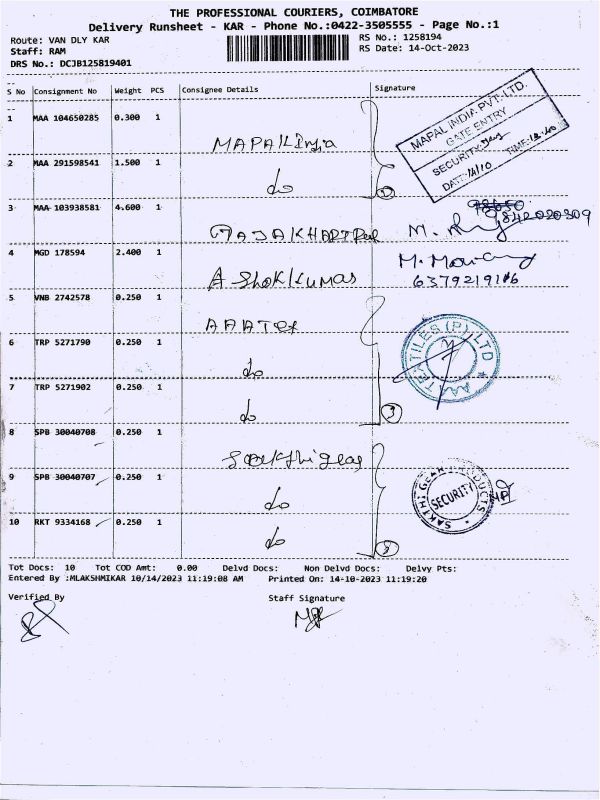 THE PROFESSIONAL COURIERS, COIMBATORE
Delivery Runsheet - KAR - Phone No.:0422-3505555 - Page No.:1
Route: VAN DLY KAR RS No.: 1258194
Staff: RAM RS Date: 14-Oct-2023
DRS No.: DCJB125819401
S No Consignment No Weight PCS Consignee Details Signature
MAPAL INDIA PVT. LTD.
GATE ENTRY
SECURITY
DATE: 14/10 TIME: 12.40
1 MAA 104650285 0.300 1 MAPAL India
2 MAA 291598541 1.500 1 do 2
3 MAA 103938581 4.600 1 9842020309
4 MGD 178594 2.400 1 Ashok Kumar M.
6379219116
5 VNB 2742578 0.250 1 AAATex
6 TRP 5271790 0.250 1 do
AA TEXTILES (P) LTD
7 TRP 5271902 0.250 1 do 3
8 SPB 30040708 0.250 1 Sakthi gear
9 SPB 30040707 0.250 1 do
SAKTHI GEAR PRODUCTS
SECURITY
10 RKT 9334168 0.250 1 do 3
Tot Docs: 10 Tot COD Amt: 0.00 Delvd Docs: Non Delvd Docs: Delvy Pts:
Entered By :MLAKSHMIKAR 10/14/2023 11:19:08 AM Printed On: 14-10-2023 11:19:20
Verified By Staff Signature